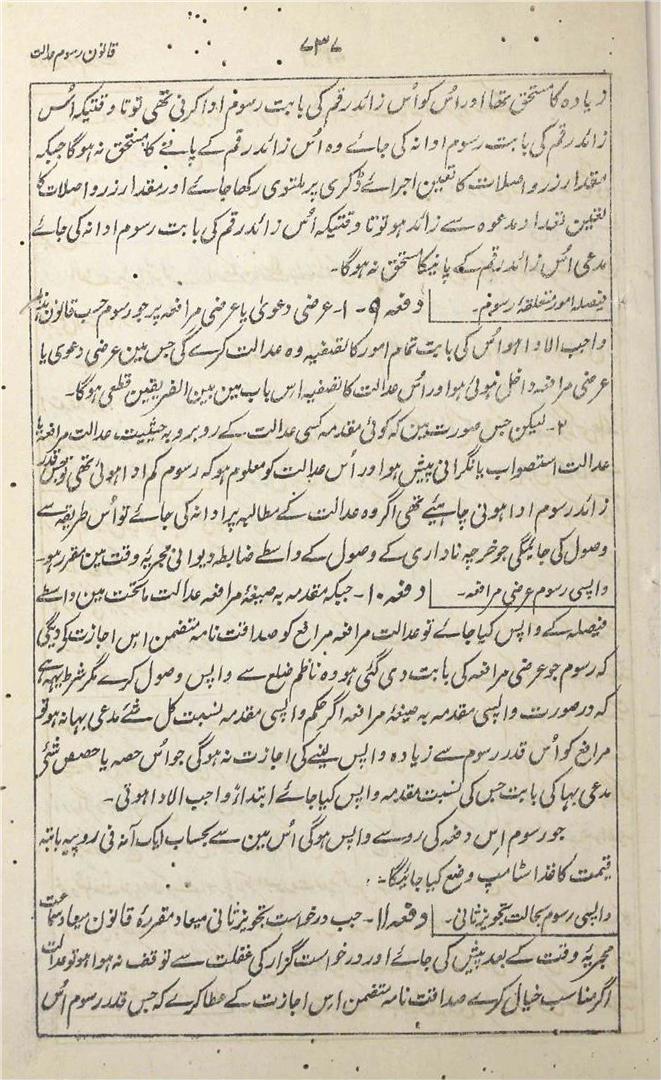 قانون رسوم عدالت
۷۳۷
زیادہ کا مستحق تھا اور اُس کو اُس زائد رقم کی بابت رسوم ادا کرنی تھی تو تا وقتیکہ اُس
زائد رقم کی بابت رسوم ادا نہ کی جائے وہ اُس زائد رقم کے پانے کا مستحق نہ ہوگا جبکہ
مقدار زر واصلات کا تعین اجرائے ڈگری پر ملتوی رکھا جائے اور مقدار زر واصلات کا
تعین تعداد مدعوہ سے زائد ہو تو تا وقتیکہ اُس زائد رقم کی بابت رسوم ادا نہ کی جائے
مدعی اُس زائد رقم کے پانیکا مستحق نہ ہوگا۔
فیصلہ امور متعلقہ رسوم۔ دفعہ ۹۔ ۱۔ عرضی دعویٰ یا عرضی مرافعہ پر جو رسوم حسب قانون ہذا
واجب الادا ہو اُس کی بابت تمام امور کا تصفیہ وہ عدالت کرے گی جس مین عرضی دعوی یا
عرضی مرافعہ داخل ہوئی ہو اور اُس عدالت کا تصفیہ اس باب مین بین الفریقین قطعی ہوگا۔
۲۔ لیکن جس صورت مین کہ کوئی مقدمہ کسی عدالت کے روبرو بہ حیثیت عدالت مرافعہ یا
عدالت استصواب یا نگرانی پیش ہوا ور اُس عدالت کو معلوم ہو کہ رسوم کم ادا ہوئی تھی تو جس قدر
زائد رسوم ادا ہونی چاہیئے تھی اگر وہ عدالت کے مطالبہ پر ادا نہ کی جائے تو اُس طریقہ سے
وصول کی جائیگی جو خرچہ ناداری کے وصول کے واسطے ضابطہ دیوانی مجریۂ وقت مین مقرر ہو۔
واپسی رسوم عرضی مرافعہ۔ دفعہ ۱۰۔ جبکہ مقدمہ بہ صیغۂ مرافعہ عدالت ماتحت مین واسطے
فیصلہ کے واپس کیا جائے تو عدالت مرافعہ مرافع کو صداقت نامہ متضمن اس اجازت کے دیگی
کہ رسوم جو عرضی مرافعہ کی بابت دی گئی ہو وہ ناظم ضلع سے واپس وصول کرے مگر شرط یہہ ہے
کہ در صورت واپسی مقدمہ بہ صیغۂ مرافعہ اگر حکم واپسی مقدمہ نسبت کل شئے مدعی بہا نہ ہو تو
مرافع کو اُس قدر رسوم سے زیادہ واپس لینے کی اجازت نہ ہوگی جو اُس حصہ یا حصص شئی
مدعی بہا کی بابت جس کی نسبت مقدمہ واپس کیا جائے ابتداءً واجب الادا ہوتی۔
جو رسوم اس دفعہ کی رو سے واپس ہوگی اُس مین سے بحساب ایک آنہ فی روپیہ بابتہ
قیمت کاغذ اسٹامپ وضع کیا جائیگا۔
واپسی رسوم بحالت تجویز ثانی۔ دفعہ ۱۱۔ جب درخواست تجویز ثانی میعاد مقررۂ قانون میعاد سماعت
مجریۂ وقت کے بعد پیش کی جائے اور درخواست گزار کی غفلت سے توقف نہ ہوا ہو تو عدالت
اگر مناسب خیال کرے صداقت نامہ متضمن اس اجازت کے عطا کرے کہ جس قدر رسوم اُس